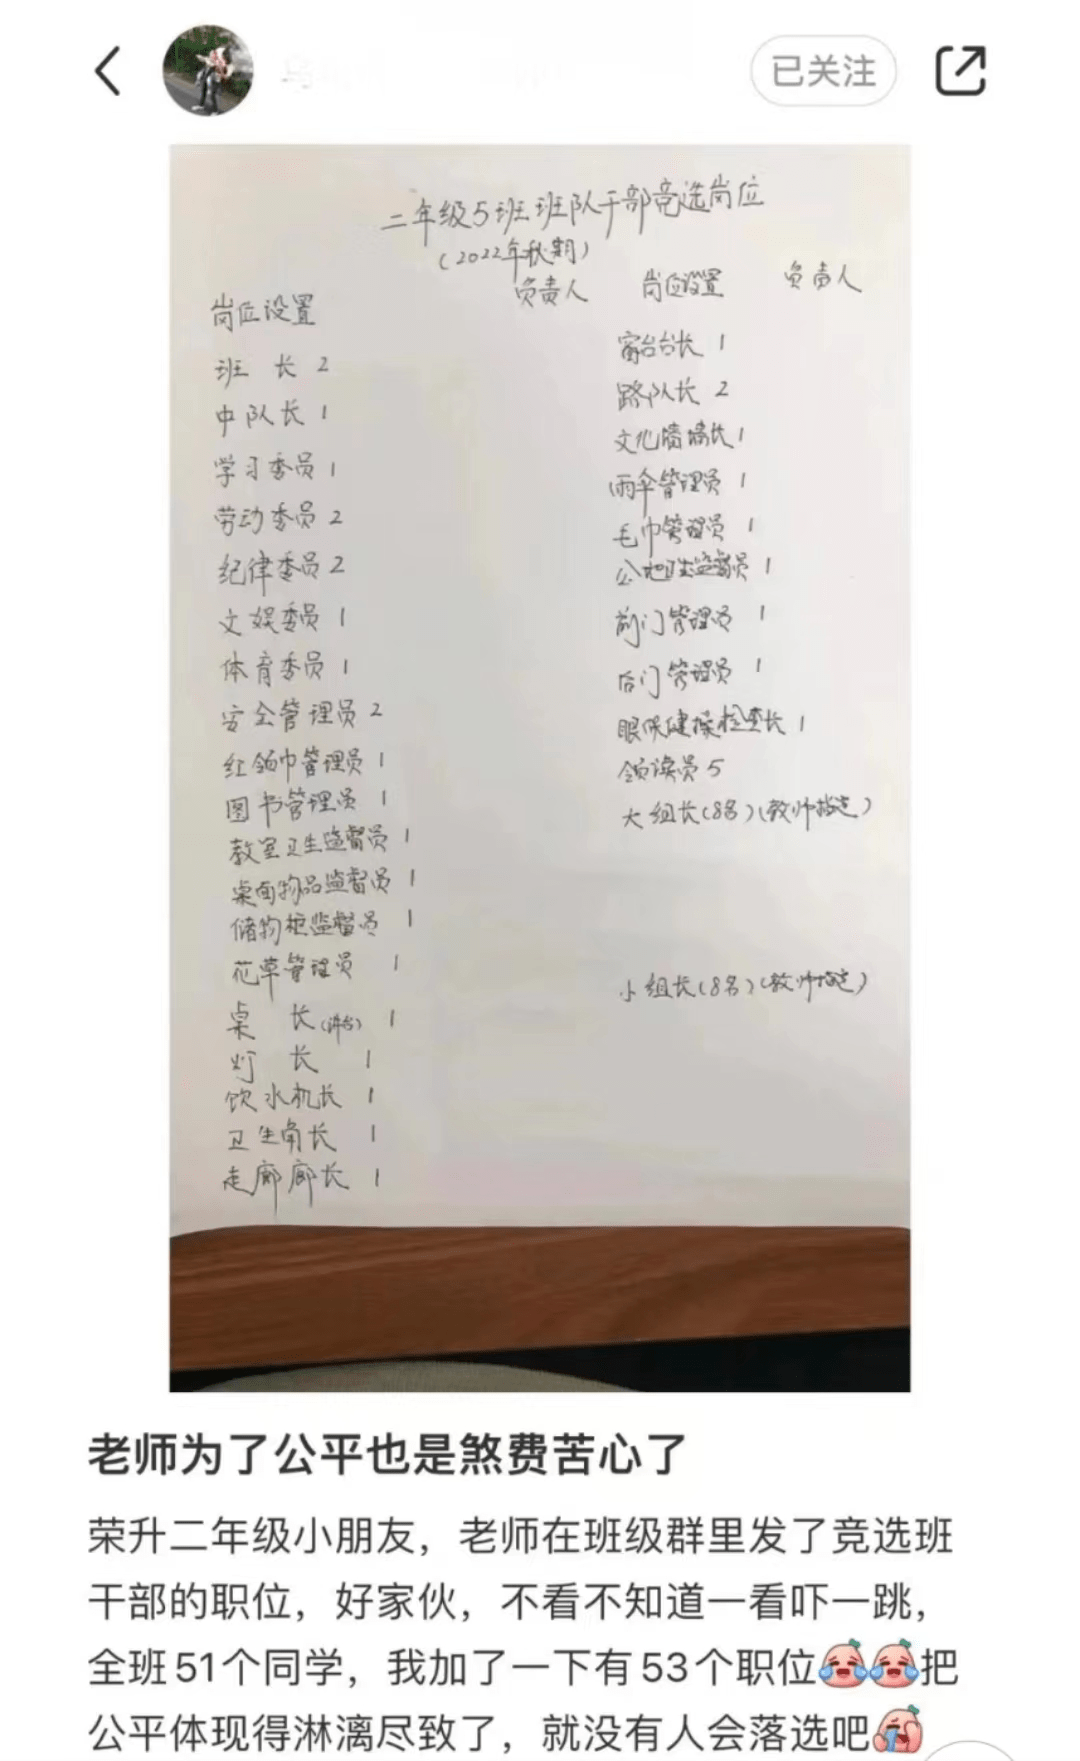 已关注
二年级5班班队干部竞选岗位
(2022年秋期)
岗位设置 负责人
班 长 2
中队长 1
学习委员 1
劳动委员 2
纪律委员 2
文娱委员 1
体育委员 1
安全管理员 2
红领巾管理员 1
图书管理员 1
教室卫生监督员 1
桌面物品监督员 1
储物柜监督员 1
花草管理员 1
桌 长(讲台) 1
灯 长 1
饮水机长 1
卫生角长 1
走廊廊长 1
岗位设置 负责人
窗台台长 1
路队长 2
文化墙墙长 1
雨伞管理员 1
毛巾管理员 1
公地卫生监督员 1
前门管理员 1
后门管理员 1
眼保健操检查长 1
领读员 5
大组长(8名)(教师指定)
小组长(8名)(教师指定)
老师为了公平也是煞费苦心了
荣升二年级小朋友，老师在班级群里发了竞选班
干部的职位，好家伙，不看不知道一看吓一跳，
全班51个同学，我加了一下有53个职位😂😂把
公平体现得淋漓尽致了，就没有人会落选吧